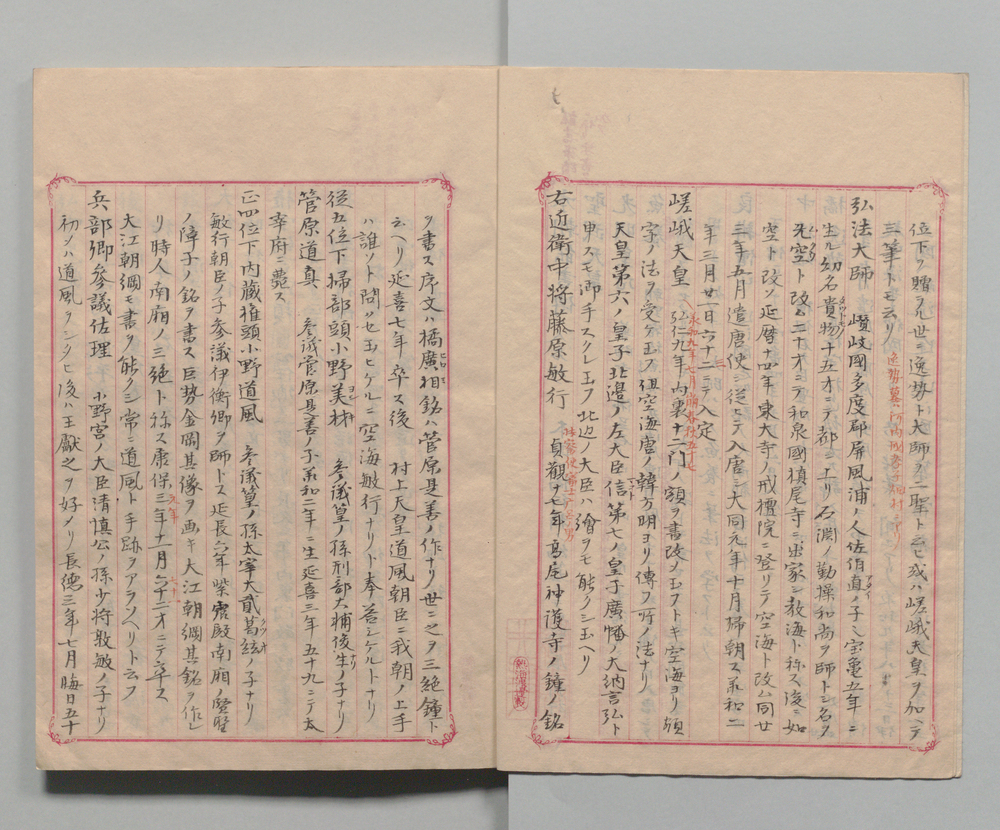 位下ヲ贈ラル世ニ逸勢ト大師ヲ二聖ト云ヒ或ハ嵯峨天皇ヲ加ヘテ
三筆トモ云リ
弘法大師 讃岐國多度郡屏風浦ノ人佐伯直ノ子ニ宝亀五年ニ
生ル幼名貴物十五才ニテ都ニ上リ石渕ノ勤操和尚ヲ師トシ名ヲ
无空ト改ム二十才ニテ和泉國槙尾寺ニ出家シ教海ト称ス後ニ如
空ト改ソ延暦十四年東大寺ノ戒檀院ニ登リテ空海ト改ム同廿
三年五月遣唐使ニ從ヒテ入唐シ大同元年十月帰朝ス承和二
年三月廿一日六十二ニテ入定
嵯峨天皇 弘仁九年内裏十二門ノ額ヲ書改ソ玉フトキ空海ヨリ額
字ノ法ヲ受ケ玉フ但空海唐ノ韓方明ヨリ傳フ所ノ法ナリ
天皇第六ノ皇子北邉ノ左大臣信第七ノ皇子廣幡ノ大納言弘ト
申スモ御手スクレ玉フ北辺ノ大臣ハ繪ヲモ能クシ玉ヘリ
右近衛中将藤原敏行 貞觀十七年高尾神護寺ノ鐘ノ銘
ヲ書ス序文ハ橘廣相銘ハ菅原是善ノ作ナリ世ニ之ヲ三絶鐘ト
云ヘリ延喜七年卒ス後 村上天皇道風朝臣ニ我朝ノ上手
ハ誰ソト問ハセ玉ヒケルニ空海敏行ナリト奉答シケルトナリ
從五位下掃部頭小野美材 参議篁ノ孫刑部大輔俊生ノ子ナリ
菅原道真 参議菅原是善ノ子承和二年ニ生延喜三年五十九ニテ太
宰府ニ薨ス
正四位下内藏権頭小野道風 参議篁ノ孫太宰大貳葛絃ノ子ナリ
敏行朝臣ノ子参議伊衡卿ヲ師トス延長六年紫宸殿南廂ノ賢聖
ノ障子ノ銘ヲ書ス巨勢金岡其像ヲ画キ大江朝綱其銘ヲ作レ
リ時人南廂ノ三絶ト称ス康保三年十二月六十二才ニテ卒ス
大江朝綱モ書ヲ能クシ常ニ道風ト手跡ヲアラソヘリト云フ
兵部卿参議佐理 小野宮ノ大臣清慎公ノ孫少将敦敏ノ子ナリ
初ソハ道風ヲシタヒ後ハ王獻之ヲ好メリ長德三年七月晦日五十